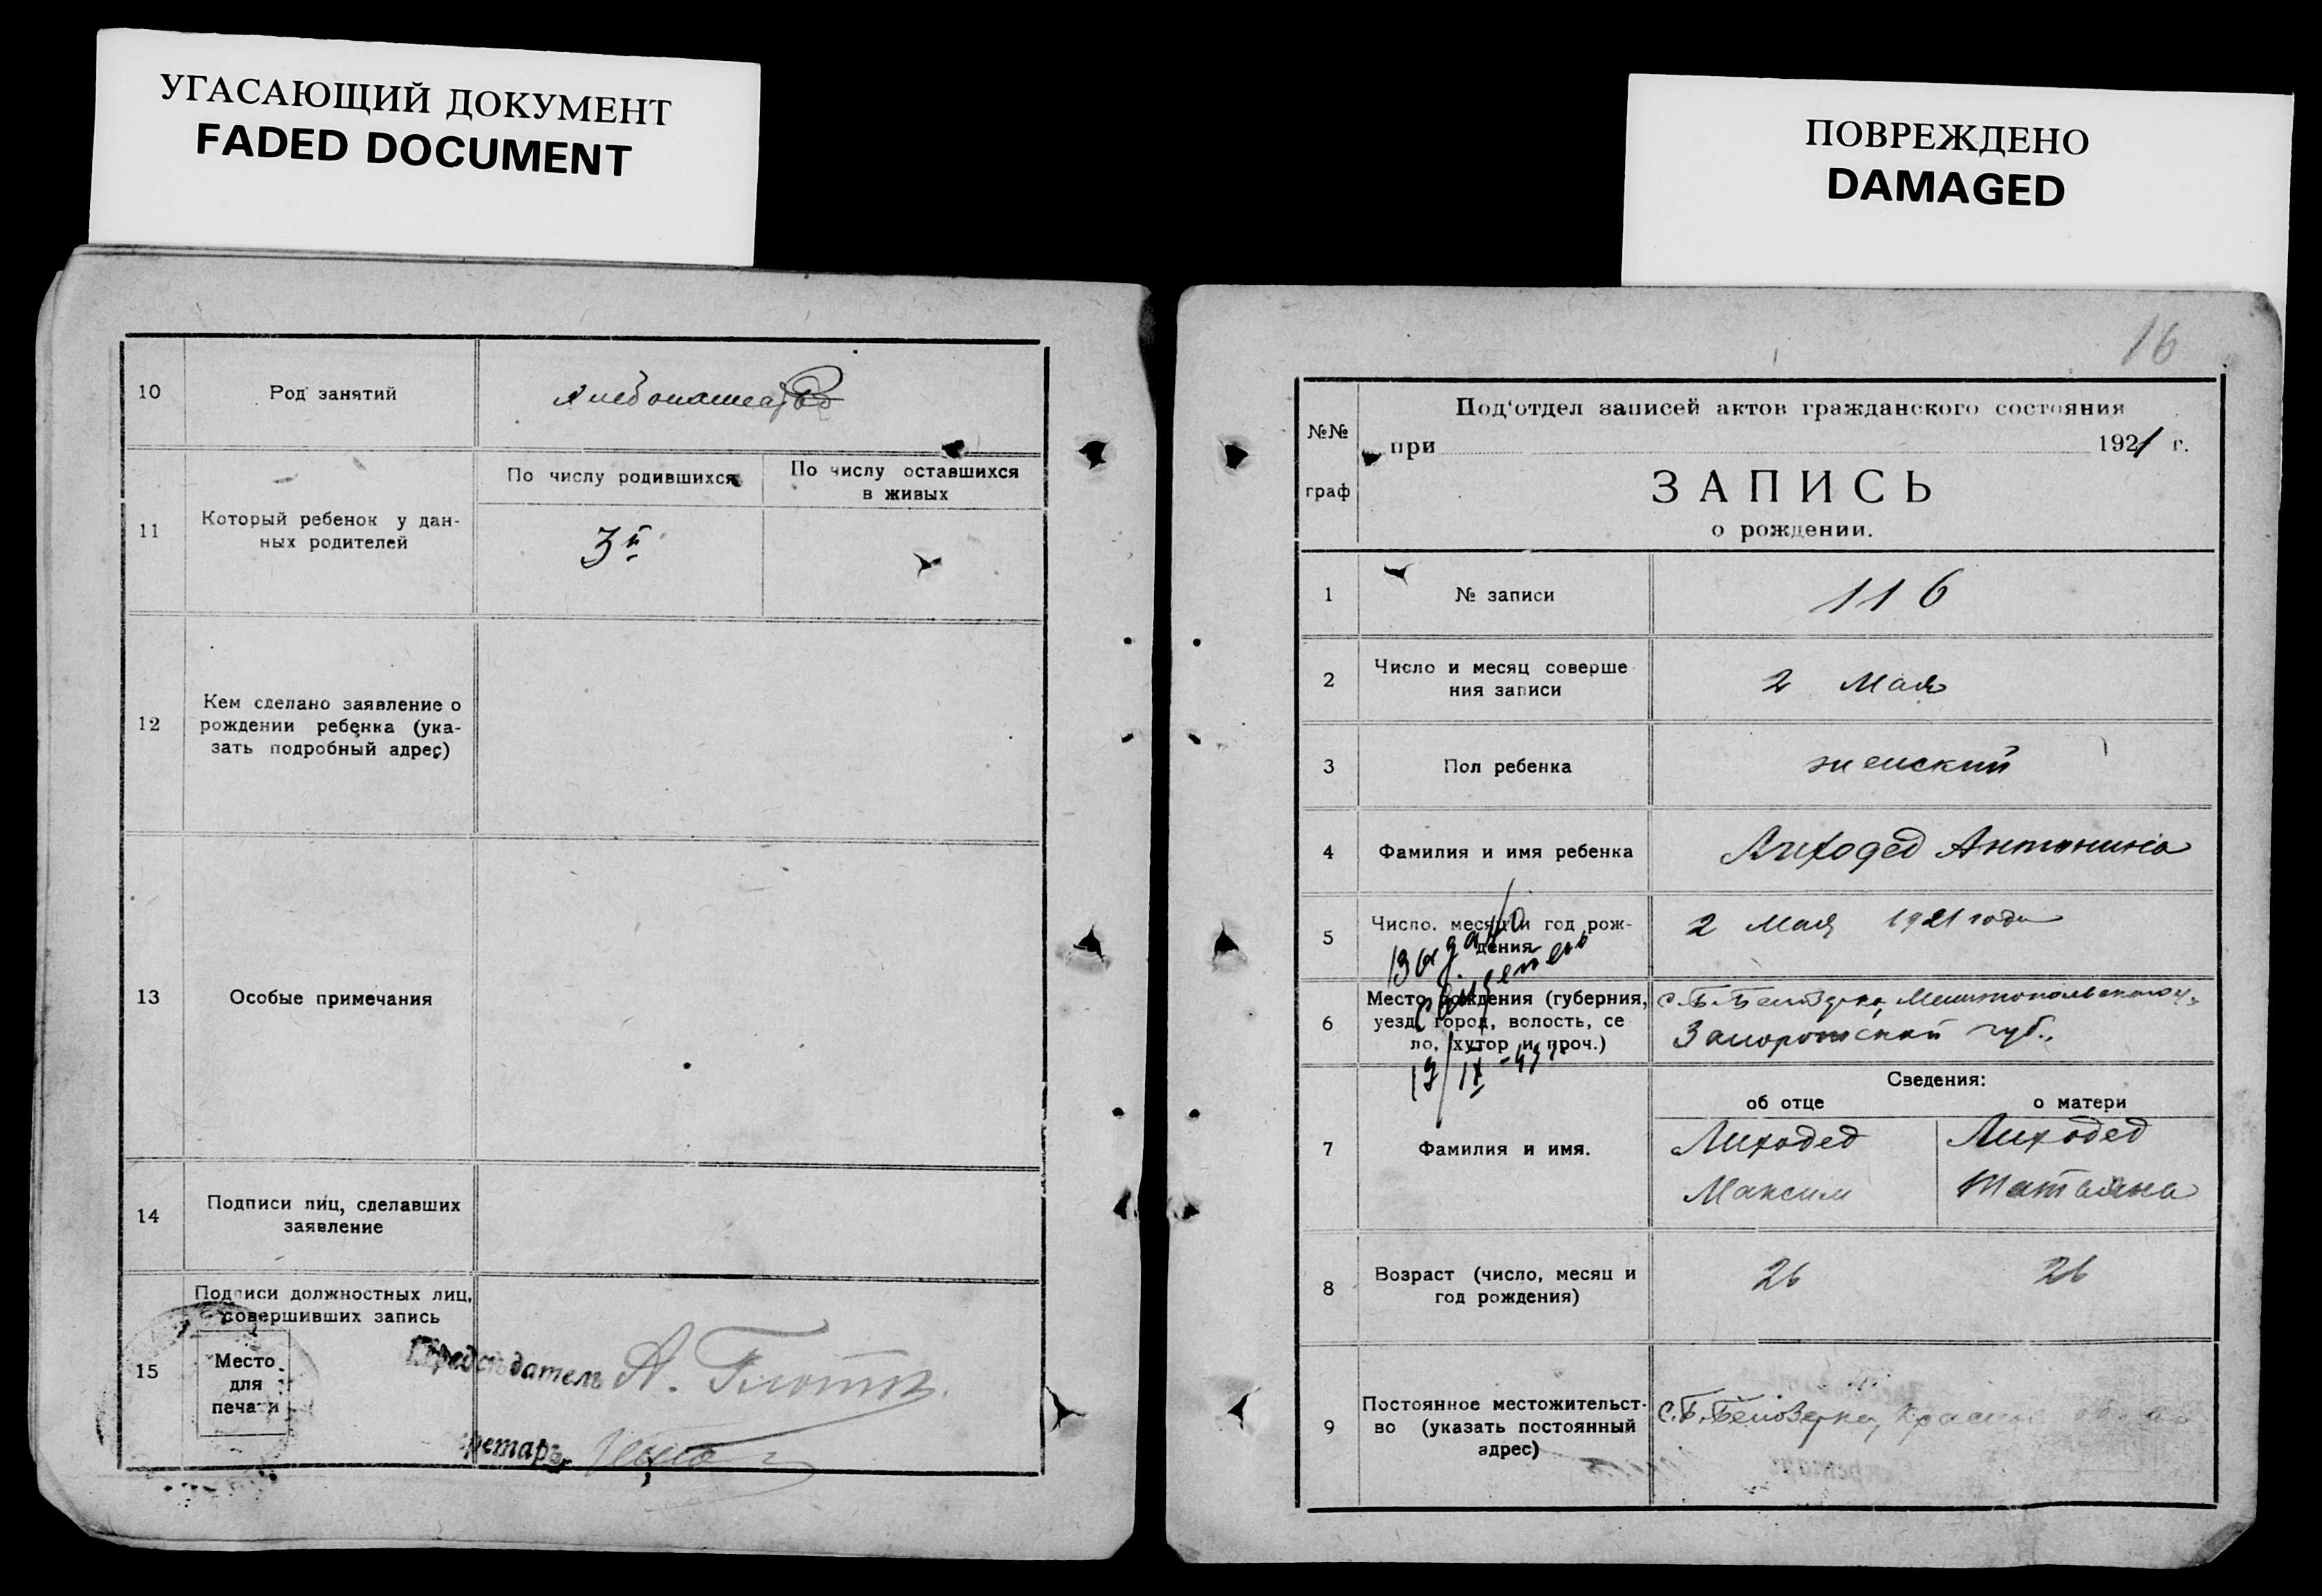 УГАСАЮЩИЙ ДОКУМЕНТ
FADED DOCUMENT
10
Род занятий
хлебопашество
11
Который ребенок у дан-
ных родителей
По числу родившихся
3й
По числу оставшихся
в живых
12
Кем сделано заявление о
рождении ребенка (ука-
зать подробный адрес)
13
Особые примечания
14
Подписи лиц, сделавших
заявление
15
Подписи должностных лиц,
совершивших запись
Место
для
печати
Председатель А.
ретарь
ПОВРЕЖДЕНО
DAMAGED
16
№№
граф
Под'отдел записей актов гражданского состояния
при 1921 г.
ЗАПИСЬ
о рождении.
1
№ записи
116
2
Число и месяц соверше
ния записи
2 Мая
3
Пол ребенка
женский
4
Фамилия и имя ребенка
Лиходед Антонина
5
Число, месяц и год рож-
дения
2 Мая 1921 года
6
Место рождения (губерния,
уезд, город, волость, се
ло, хутор и проч.)
с. Б. Белозерка, Мелитопольского у.
Запорожской губ.
Сведения:
об отце
о матери
7
Фамилия и имя.
Лиходед
Максим
Лиходед
Татьяна
8
Возраст (число, месяц и
год рождения)
26
26
9
Постоянное местожительст-
во (указать постоянный
адрес)
С. Б. Белозерка,